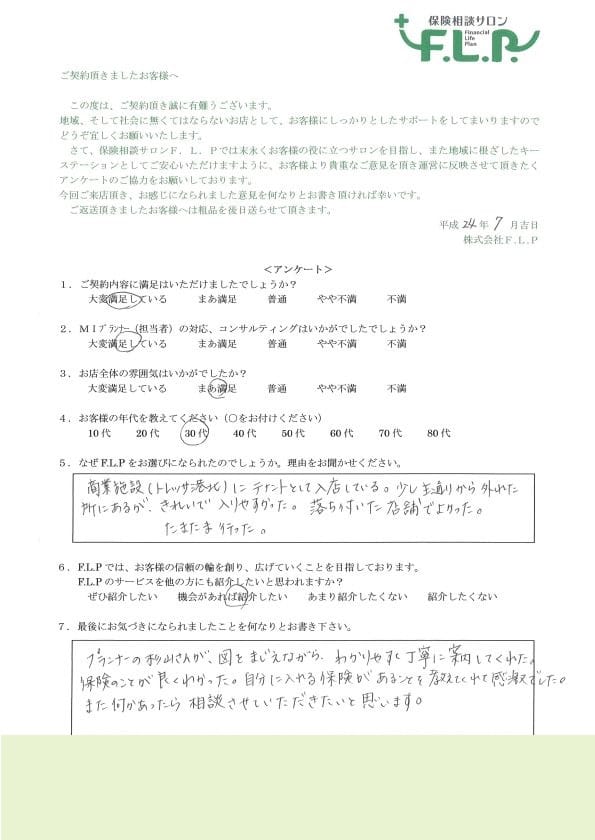 保険相談サロン
F.L.P.
Financial
Life
Plan
ご契約頂きましたお客様へ
この度は、ご契約頂き誠に有難うございます。
地域、そして社会に無くてはならないお店として、お客様にしっかりとしたサポートをしてまいりますので
どうぞ宜しくお願いいたします。
さて、保険相談サロンF．L．Pでは末永くお客様の役に立つサロンを目指し、また地域に根ざしたキー
ステーションとしてご安心いただけますように、お客様より貴重なご意見を頂き運営に反映させて頂きたく
アンケートのご協力をお願いしております。
今回ご来店頂き、お感じになられました意見を何なりとお書き頂ければ幸いです。
ご返送頂きましたお客様へは粗品を後日送らせて頂きます。
平成 24 年 7 月吉日
株式会社F.L.P
＜アンケート＞
1．ご契約内容に満足はいただけましたでしょうか？
大変満足している　まあ満足　普通　やや不満　不満
2．MIプランナー（担当者）の対応、コンサルティングはいかがでしたでしょうか？
大変満足している　まあ満足　普通　やや不満　不満
3．お店全体の雰囲気はいかがでしたか？
大変満足している　まあ満足　普通　やや不満　不満
4．お客様の年代を教えてください（○をお付けください）
10代　20代　30代　40代　50代　60代　70代　80代
5．なぜF.L.Pをお選びになられたのでしょうか。理由をお聞かせください。
商業施設(トレッサ港北)にテナントとして入店している。少し主通りから外れた
所にあるが、きれいで入りやすかった。落ち付いた店舗でよかった。
たまたま行った。
6．F.L.Pでは、お客様の信頼の輪を創り、広げていくことを目指しております。
F.L.Pのサービスを他の方にも紹介したいと思われますか？
ぜひ紹介したい　機会があれば紹介したい　あまり紹介したくない　紹介したくない
7．最後にお気づきになられましたことを何なりとお書き下さい。
プランナーの杉山さんが、図をまじえながら、わかりやすく丁寧に案内してくれた。
保険のことが良くわかった。自分に入れる保険があることを教えてくれて感激でした。
また何かあったら相談させていただきたいと思います。